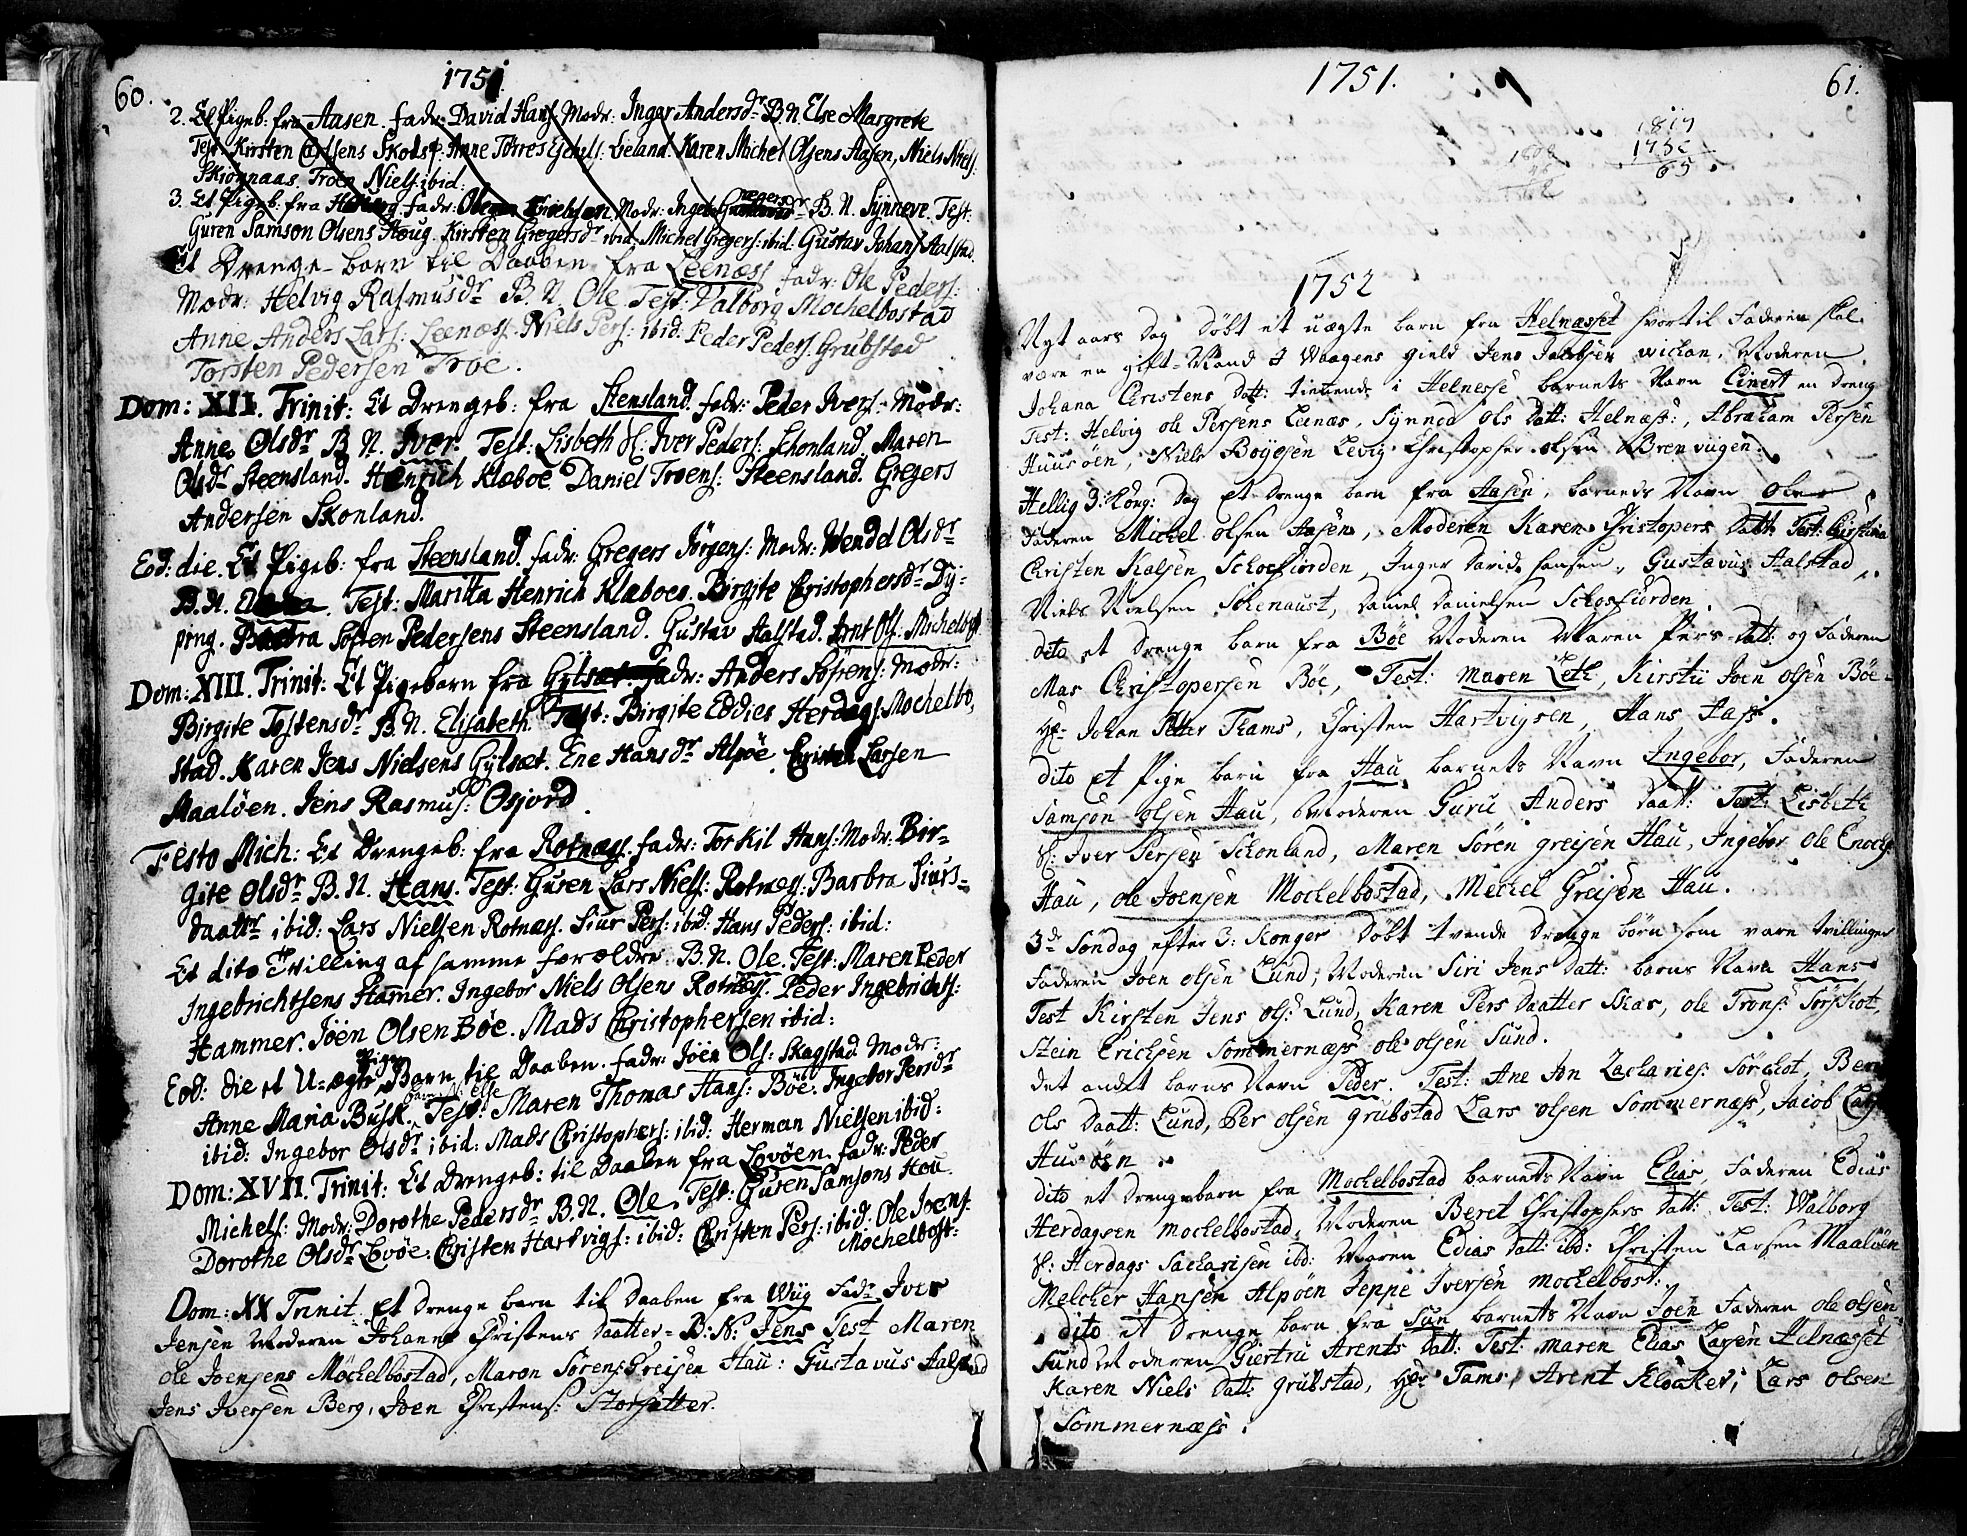 60.
1751
2. Et Pigeb: fra Aasen. fadr: David Hans: Modr: Inger Andersdr B:N Else Margrete
Test: Kirsten Carlsens Skodsf: Anne Törres Leland. Karen Michel Olsens Aasen, Niels Niels:
Skiönnaas. Troen Niels: ibid:
3. Et Pigeb: fra fadr: Modr: Ingeb: B. N. Synneve. Test:
Guren Samson Olsens Houg. Kirsten Gregersdr ibid. Michel Gregers: ibid: Gustav Johans: Aalstad.
Et Drenge-barn til Daaben fra Leenæss fadr: Ole Peders:
Modr: Helvig Rasmusdr B. N. Ole. Test: Valborg Mochelbostad
Anne Anders Lars: Leenæss. Niels Pers: ibid: Peder Peders: Grubstad
Torsten Pedersen Troe.
Dom: XII. Trinit: Et Drengeb: fra Stensland. fadr: Peder Ivers: Modr:
Anne Olsdr B. N. Iver. Test: Lisbeth Sl. Iver Peders: Schonland. Maren
Olsdr Steensland. Henrich Klæboe. Daniel Troens: Steensland. Gregers
Andersen Skonland.
Eod: die. Et Pigeb: fra Steensland. fadr: Gregers Jörgens: Modr: Wendel Olsdr
B. N. Test: Maritta Henrich Klæboes. Birgite Christophersdr Dy-
ping. Barbra Sofren Pedersens Steensland. Gustav Aalstad. Arnt Ols: Michelbost
Dom: XIII. Trinit: Et Pigebarn fra Gylsæt. fadr: Anders Söfrens: Modr:
Birgite Tostensdr B. N. Elisabeth. Test: Birgite Eddies Herdags: Mochelbo,
stad. Karen Jens Nielsens Gylsæt. Ene Hansdr Alpöe. Christen Larsen
Maalöen. Jens Rasmus: Osjord.
Festo Mich: Et Drengeb: fra Rotnæs. fadr: Torkil Hans: Modr: Bir-
gite Olsdr B. N. Hans. Test: Guren Lars Niels: Rotnæs. Barbra Siurs-
daattr ibid: Lars Nielsen Rotnæss. Siur Pers: ibid: Hans Peders: ibid:
Et dito Tvilling af samme forældre. B. N. Ole. Test: Maren Peder
Ingebrichtsens Hamer. Ingebor Niels Olsens Rotnæs. Peder Ingebrichts:
Hammer. Jöen Olsen Böe. Mads Christophersen ibid:
Eod: die et U-ægte Pige Barn til Daaben. fadr: Jöen Ols: Skagstad. Modr:
Anne Maria Busk. barnets N: else Test: Maren Thomas Hans: Böe. Ingebor Persdr
ibid: Ingebor Olsdr ibid: Mads Christophers: ibid: Herman Nielsen ibid:
Dom: XVII. Trinit: Et Drengeb: til Daaben fra Lovöen. fadr: Peder
Michels: Modr: Dorothe Pedersdr B. N. Ole. Test: Guren Samsons Hou.
Dorothe Olsdr Lovöe. Christen Hartvigs: ibid: Christen Pers: ibid: Ole Joens:
Mochelbost:
Dom: XX Trinit. Et Drenge barn til Daaben fra Wiig Fadr Iver
Jensen Moderen Johanne Christens Daatter B: N: Jens Test Maren
Ole Joensens Möckelbostad, Maron Sörens Greisen Hau: Gustavus Aalstad
Jens Iversen Berg, Joen Christens: Storsetter.
1751.
61.
1817
1752
65
1808
1752
Nyt aars Dag Döbt et uægte barn fra Helnesset hvortil Faderen skal
være en gift-Mand i Waagens gield Jens Jacobsen wickan, Moderen
Johana Christens Datt: tienende i Helnesse barnets Navn Einert en dreng
Test: Helvig ole Persens Leenæs, Synnev Ols Datt: Helnæss:, Abraham Persen
Huusöen, Niels Böyesen Levig Christopher olsen Brenviigen.
Hellig 3: Kong: Dag Et drenge barn fra Aasen, barneds Navn Ole
Faderen Michel olsen Aasen, Moderen Karen Christopers Datt: Test: Christina
Christen Kalsen Schosfiorden, Inger David Hansen, Gustavus Aalstad,
Niels Nielsen Schenaust, Daniel Danielsen Schosfiorden.
dito et drenge barn fra Böe Moderen Maren Pers Datt: og Faderen
Mas Christopersen Böe, Test: Maren Leth, Kirsti Joen olsen Böe
Hr Johan Petter Thams, Christen Hartvigsen, Hans Hass.
dito et Pige barn fra Hau barnets Navn Ingebor, Faderen
Samson olsen Hau, Moderen Guru Anders Daatt: Test: Lisbeth
Sl: Iver Persen Schonland, Maren Sören greisen Hau, Ingebor Ole Enochs:
Hau, ole Joensen Mockelbostad, Mechel Greisen Hau.
3de Söndag efter 3: Konger döbt tvende drenge börn som vare tvillinger
Faderen Joen olsen Lund, Moderen Siri Jens Datt: barns Navn Hans
Test Kirsten Jens ols: Lund, Karen Pers Daatter Skar, ole Trons: Sörskot,
Stein Erichsen Sommernæss ole olsen Sund.
det andet barns Navn Peder. Test: Ane An Zacharies: Sörskot, Beret
Ols Daatt: Lund, Per olsen grubstad Lars olsen Sommernæss, Jacob Lars
Huusöen.
dito et drengebarn fra Mockelbostad barnets Navn Elias, Faderen Edias
Herdagsen Mockelbostad, Moderen Beret Christophers Datt: Test: Walborg
Sl: Herdags Sacharisen ibd: Maren Edias Datt: ibd: Christen Larsen Maalöen
Melcher Hansen Alpöen Jeppe Iversen Mockelbost:
dito et drenge barn fra Sun barnets Navn Joen Faderen ole olsen
Sund Moderen Giertru Arents Datt: Test: Maren Elias Larsen Helnæsset
Karen Niels Datt: grubstad, Hr Tams, Arent Klocker, Lars olsen
Sommernæss.